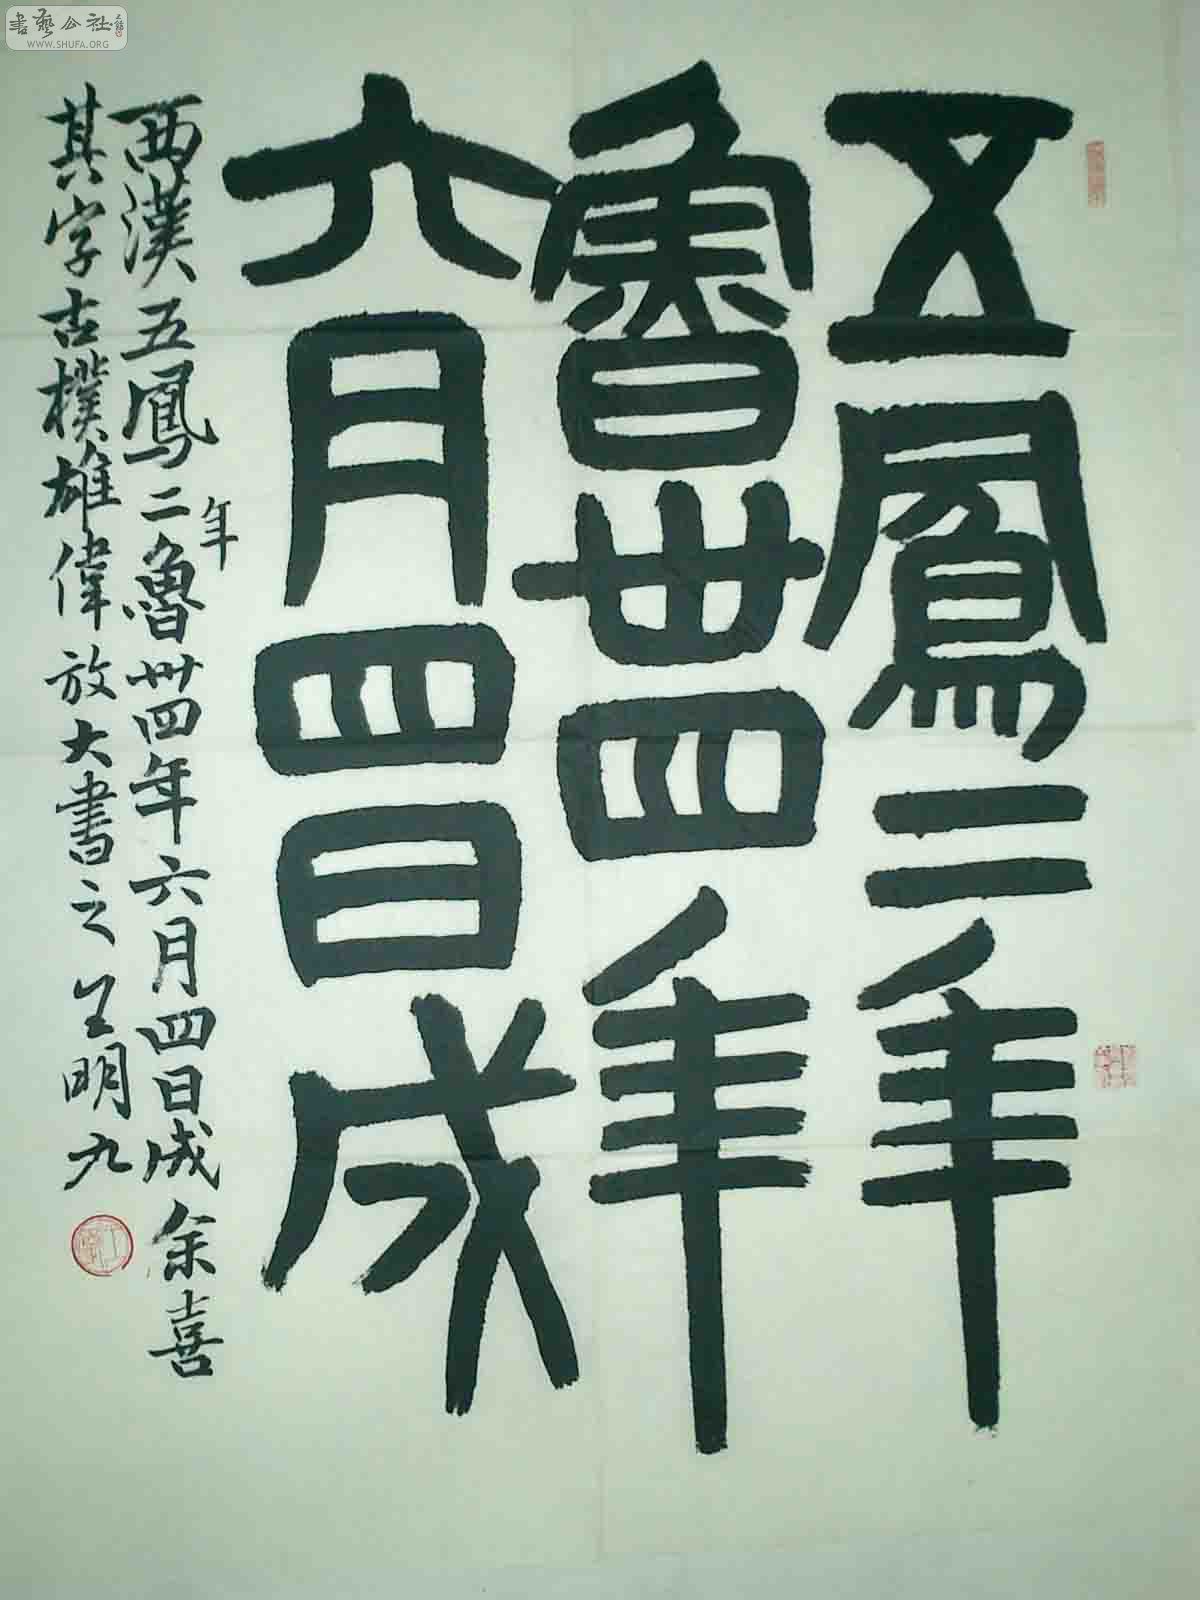 五鳳二年
魯卅四年
六月四日成
西漢五鳳二年魯卅四年六月四日成余喜
其字古樸雄偉放大書之王明九
書藝公社
WWW.SHUFA.ORG